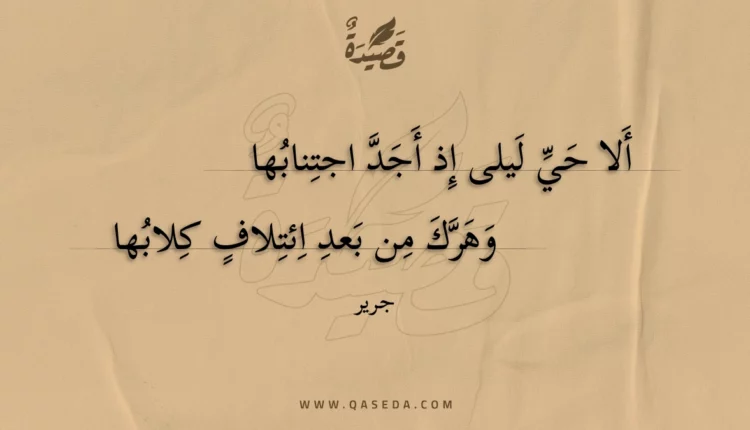 قَصِيدَةٌ
أَلا حَيِّ لَيلى إِذ أَجَدَّ اجتِنابُها
وَهَرَّكَ مِن بَعدِ اِئتِلافٍ كِلابُها
جرير
WWW.QASEDA.COM